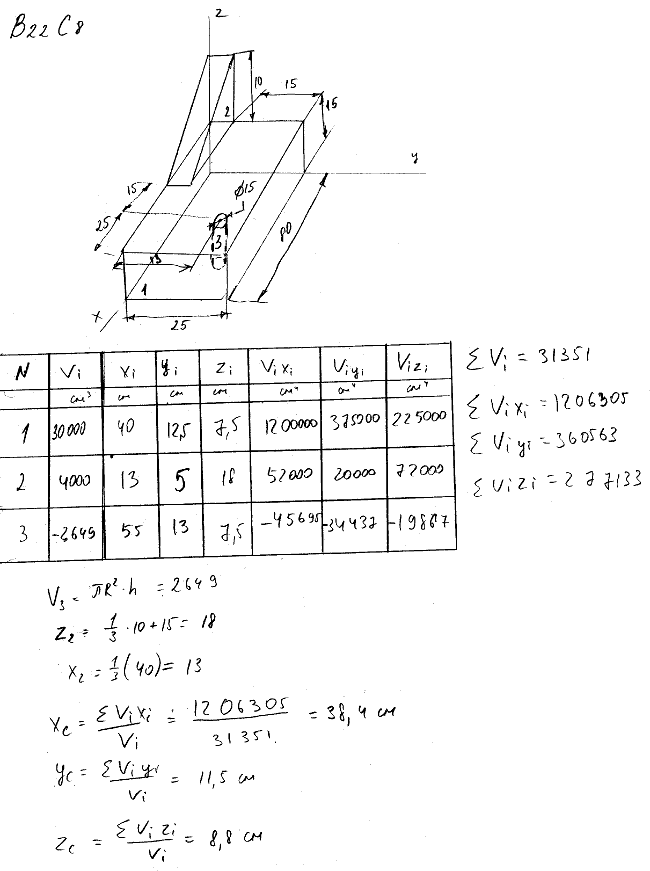 B22 C8
z
10
15
15
2
y
15
ϕ15
25
3
80
x3
1
x
25
N Vi xi yi zi Vixi Viyi Vizi
см³ см см см см⁴ см⁴ см⁴
1 30000 40 12,5 7,5 1200000 375000 225000
2 4000 13 5 18 52000 20000 72000
3 -2649 55 13 7,5 -45695 -34437 -19867
Σ Vi = 31351
Σ Vixi = 1206305
Σ Viyi = 360563
Σ Vizi = 277133
V3 = πR²·h = 2649
Z2 = 1/3 · 10 + 15 = 18
x2 = 1/3 (40) = 13
xc = Σ Vixi / Vi = 1206305 / 31351 = 38,4 см
yc = Σ Viyi / Vi = 11,5 см
zc = Σ Vi zi / Vi = 8,8 см